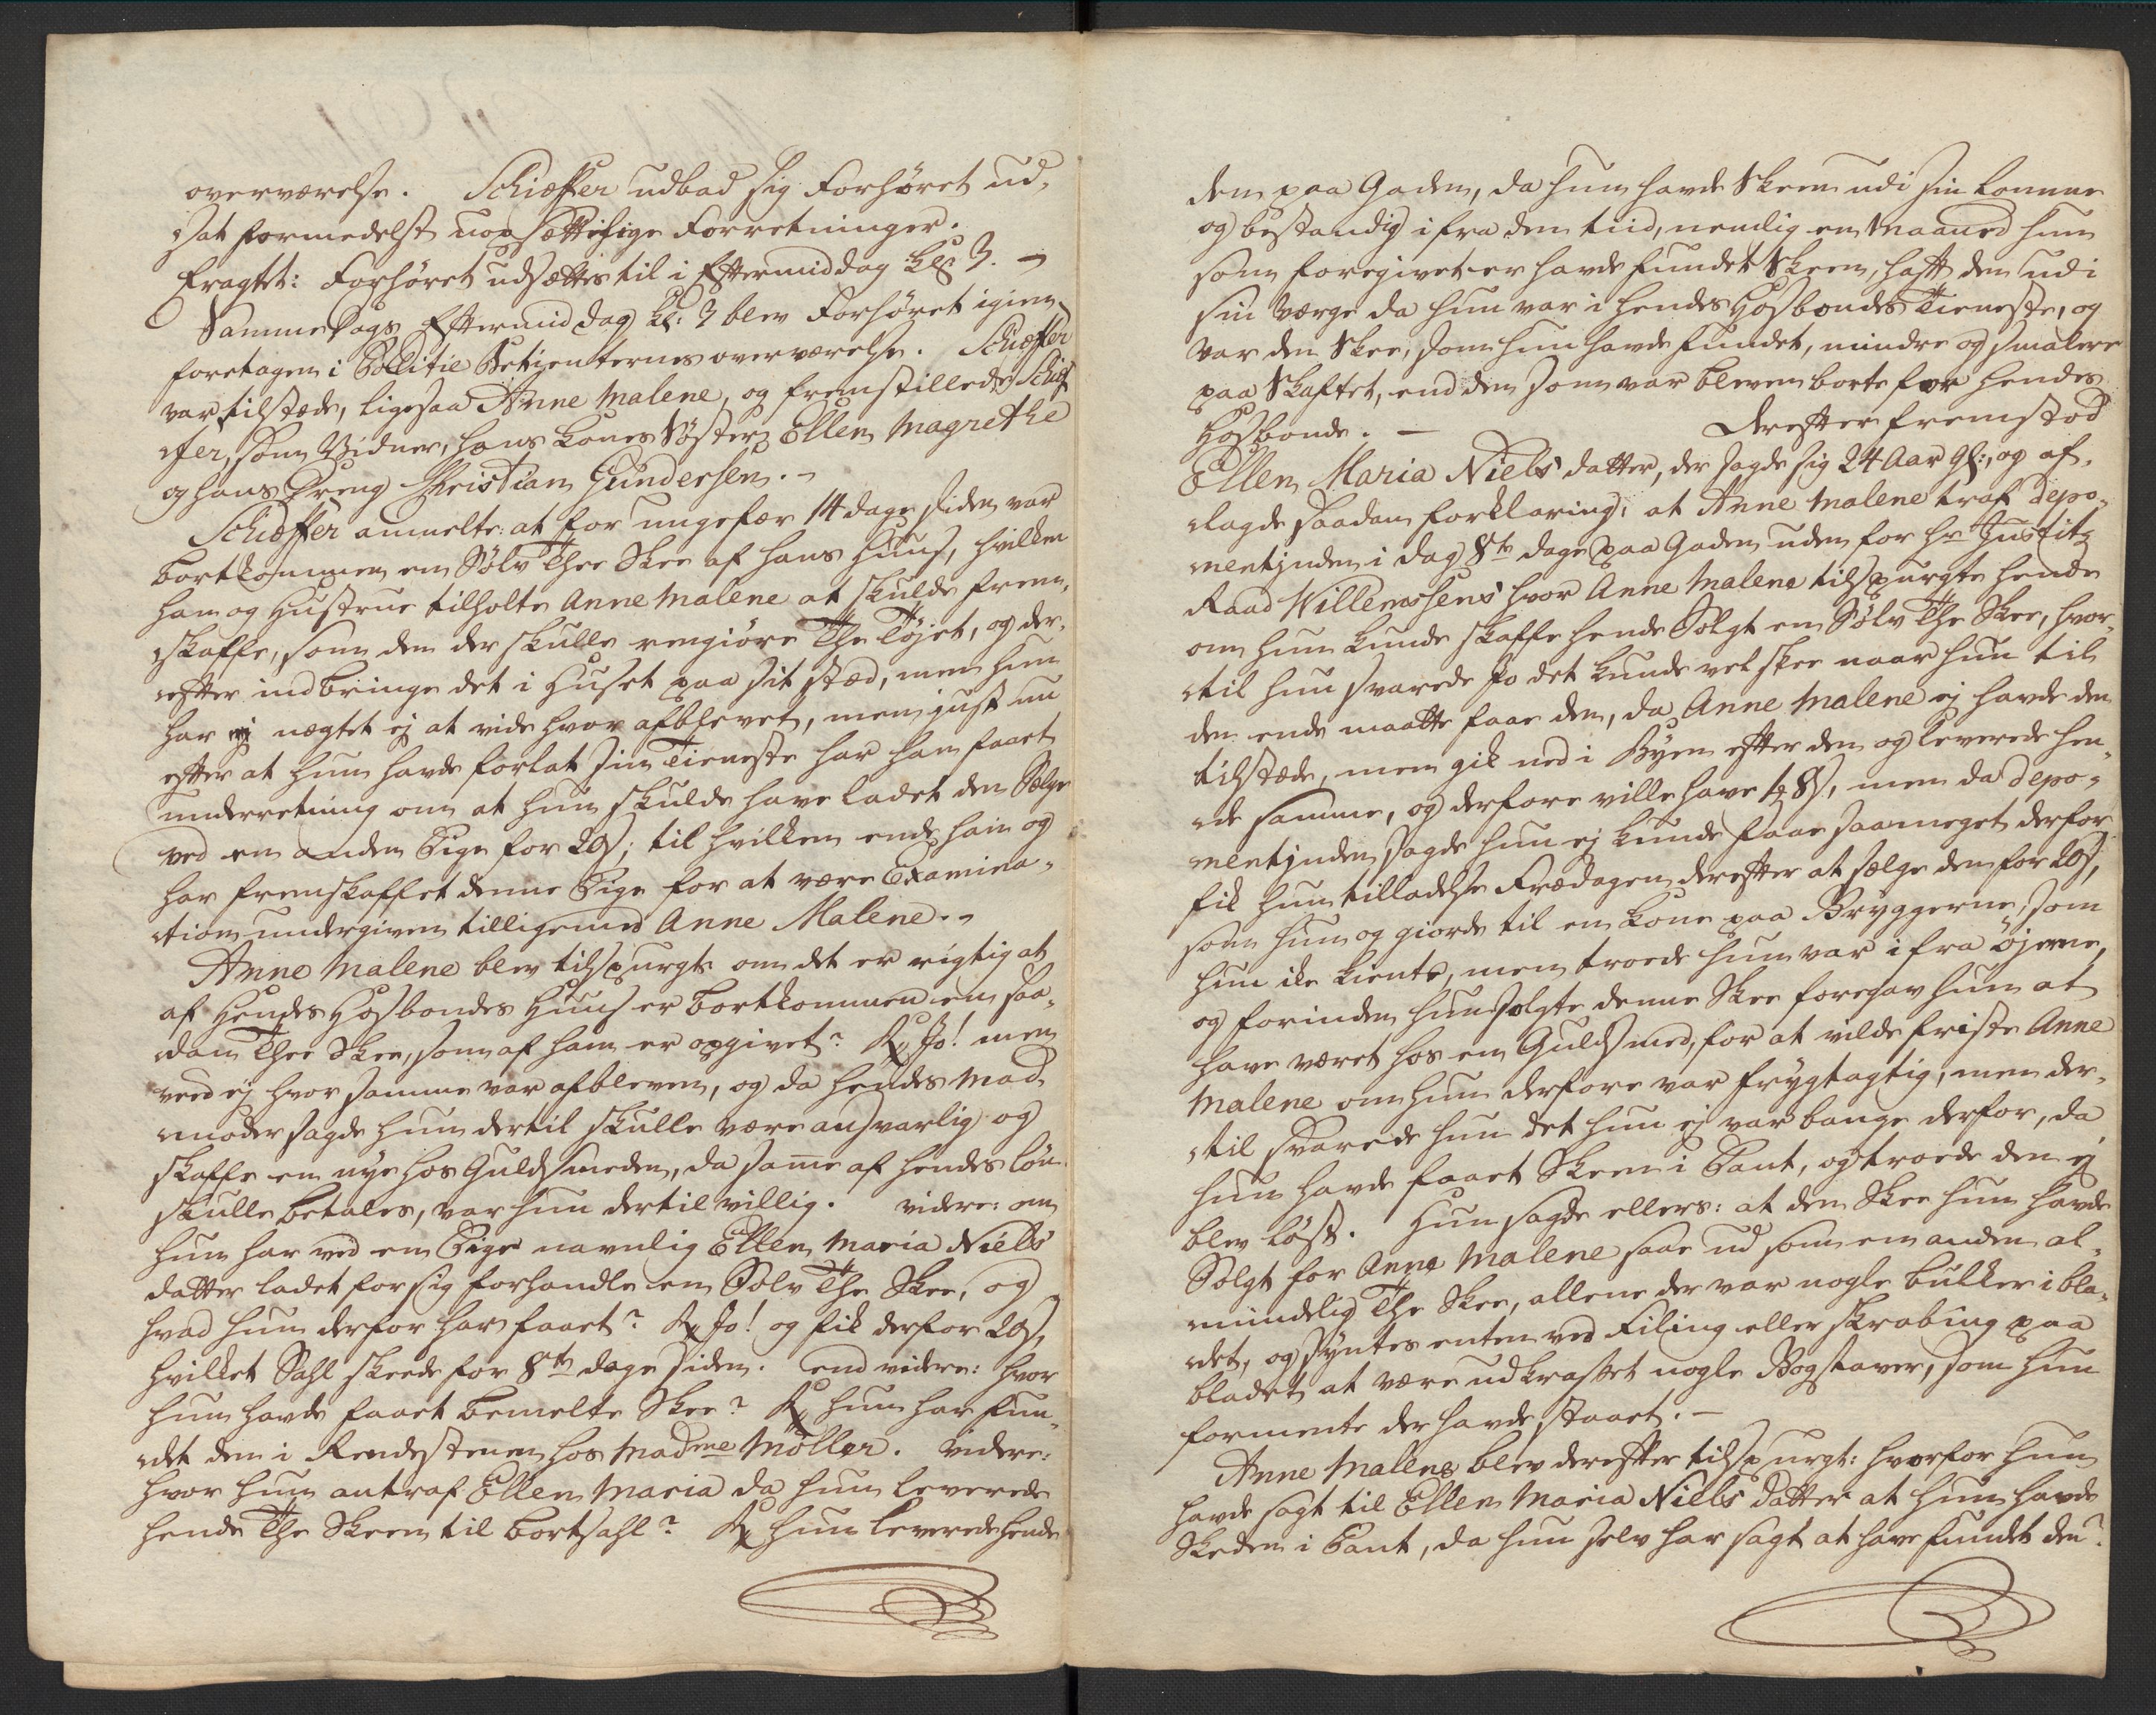 overværelse. Schiæffer udbad sig Forhøret ud,
sat formedelst uopsættelige Forretninger.
Eragtet: Forhøret udsættes til i Eftermiddag Kl: 3. –
Samme Dags Eftermiddag Kl: 3 blev Forhøret igien
foretagen i Politie Betienternes overværelse. Schiæffer
var tilstæde, ligesaa Anne Malene, og fremstillede Schiæf
fer, som Vidner, hans Kones Søster Ellen Magrethe
og hans Dreng Christian Gundersen. –
Schiæffer anmelte: at for ungefær 14 dage siden var
bortkommen en Sølv Thee Skee af hans Huus, hvilken
ham og Hustrue tilholte Anne Malene at skulde frem,
skaffe, som den der skulle rengiøre The Tøjet, og der,
efter indbringe det i Huset paa sit stæd, men hun
har nægtet ej at vide hvor afblevet, men just nu
efter at hun havde forlat sin Tieneste har ham faaet
underretning om at hun skulde have ladet den Sælge
ved en anden Pige for 20 s; til hvilken ende ham og
har fremskaffet denne Pige for at være Examina-
tion undergiven tilligemed Anne Malene. –
Anne Malene blev tilspurgt om det er rigtig at
af Hendes Hosbondes Huus er bortkommen en saa,
dan Thee Skee, som af ham er opgivet? R. Jo! men
veed ej hvor samme var afbleven, og da hendes Mad,
moder sagde hun dertil skulle være ansvarlig og
skaffe en nye hos Guldsmeden, da same af hendes løn
skulle betales, var hun dertil villig. videre: om
hun har ved en Pige navnlig Ellen Maria Niels
datter ladet for sig forhandle en Sølv The Skee, og
hvad hun derfor har faaet? R. Jo! og fik derfor 20 s,
hvilket Sahl skeede for 8te dage siden. end videre: hvor
hun havde faaet bemelte Skee? R. hun har fun,
det den i Rendestenen hos Madme Möller. Videre:
hvor hun antraf Ellen Maria da hun leverede
hende The Skeen til bortsahl? R. hun leverede hende
den paa Gaden, da hun havde Skeen udi sin Lomme
og bestandig ifra den tiid, nemlig en Maaned hun
som foregivet er havde fundet Skeen, haft den udi
sin værge da hun var i hendes Hosbondes Tieneste, og
var den Skee, som hun havde fundet, mindre og smalere
paa Skaftet, end den som var bleven borte for hendes
Hosbonde. – Derefter fremstod
Ellen Maria Niels datter, der sagde sig 24 Aar gl:, og af,
lagde saadan forklaring; at Anne Malene traf depo-
nentjnden i dag 8te dage paa Gaden uden for Hr Justitz
Raad Willemsens hvor Anne Malene tilspurgte hende
om hun kunde skaffe hende Solgt en Sølv The Skee, hvor,
til hun svarede Jo det kunde vel skee naar hun til
den ende maatte faae den, da Anne Malene ej havde den
tilstæde, men gik ned i Byen efter den og leverede hen,
de samme, og derfore ville have 1/2 Rd, men da depo-
nentjnden sagde hun ej kunde faae saameget derfor
fik hun tilladelse Fredagen derefter at sælge den for 20 s,
som hun og giorde til en Kone paa Bryggerne, som
hun ikke kiente, men troede hun var ifra Øjerne,
og forinden hun solgte denne Skee foregav hun at
have været hos en Guldsmed, for at vilde friste Anne
Malene om hun derfore var frygtagtig, men der,
til svarede hun det hun ej var bange derfor, da
hun havde faaet Skeen i Pant, og troede den ej
blev løst. Hun sagde ellers: at den Skee hun havde
Solgt for Anne Malene saae ud som en anden al,
mindelig The Skee, allene der var nogle bukker i bla,
det, og syntes enten ved Filing eller skrabing paa
bladet at være udkrasset nogle Bogstaver, som hun
formente der havde staaet. –
Anne Malene blev derefter tilspurgt: hvorfor hun
havde sagt til Ellen Maria Niels datter at hun havde
Skeden i Pant, da hun selv har sagt at have fundet den?